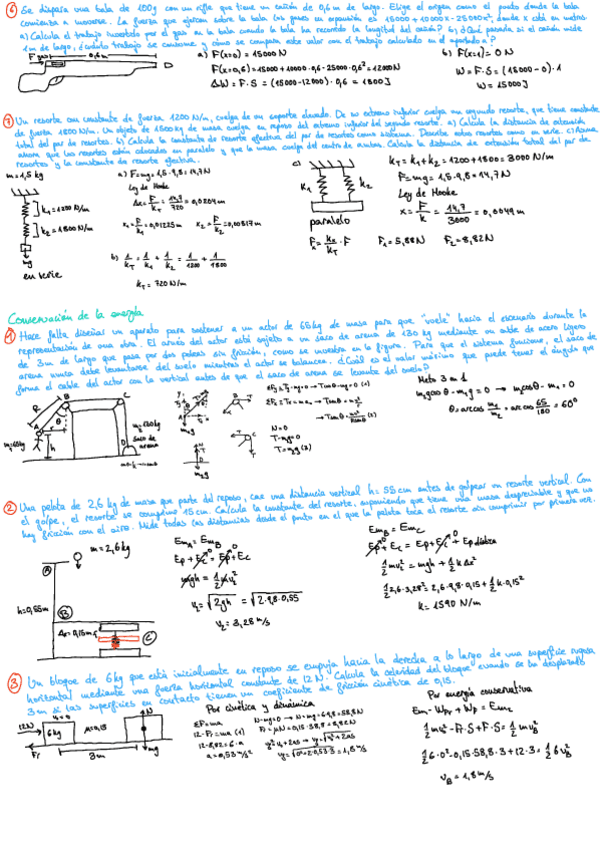 ⑥ Se dispara una bala de 100g con un rifle que tiene un cañón de 0,6 m de largo. Elige el origen como el punto donde la bala
comienza a moverse. La fuerza que ejercen sobre la bala los gases en expansión es 15000 + 10000x - 25000x², donde x está en metros.
a) Calcula el trabajo invertido por el gas en la bala cuando la bala ha recorrido la longitud del cañón? b) ¿Qué pasaría si el cañón mide
1m de largo, ¿cuánto trabajo se consume y cómo se compara este valor con el trabajo calculado en el apartado a?
F gas 0,6m
a) F(x=0) = 15000 N
F(x=0,6) = 15000 + 10000·0,6 - 25000·0,6² = 12000N
ΔW = F·S = (15000-12000)·0,6 = 1800J
b) F(x=1) = 0 N
W = F·S = (15000-0)·1
W = 15000J
⑦ Un resorte con constante de fuerza 1200 N/m, cuelga de un soporte elevado. De su extremo inferior cuelga un segundo resorte, que tiene constante
de fuerza 1800 N/m. Un objeto de 1500 kg de masa cuelga en reposo del extremo inferior del segundo resorte. a) Calcula la distancia de extensión
total del par de resortes. b) Calcula la constante de resorte efectiva del par de resortes como sistema. Describe estos resortes como en serie. c) Asume
ahora que los resortes están colocados en paralelo y que la masa cuelga del centro de ambos. Calcula la distancia de extensión total del par de
resortes y la constante de resorte efectiva.
m = 1,5 kg
k₁ = 1200 N/m
k₂ = 1800 N/m
mg
en serie
a) F = mg = 1,5·9,8 = 14,7N
Ley de Hooke
Δx = F/k = 14,7/720 = 0,0204m
x₁ = F/k₁ = 0,01225m x₂ = F/k₂ = 0,00817m
b) 1/kT = 1/k₁ + 1/k₂ = 1/1200 + 1/1800
kT = 720 N/m
c)
k₁ k₂
paralelo
kT = k₁ + k₂ = 1200 + 1800 = 3000 N/m
F = mg = 1,5·9,8 = 14,7N
Ley de Hooke
x = F/k = 14,7/3000 = 0,0049m
F₁ = 5,88N F₂ = 8,82N
Conservación de la energía
① Hace falta diseñar un aparato para sostener a un actor de 65kg de masa para que "vuele" hacia el escenario durante la
representación de una obra. El arnés del actor está sujeto a un saco de arena de 130 kg mediante un cable de acero ligero
de 3m de largo que pasa por dos poleas sin fricción, como se muestra en la figura. Para que el sistema funcione, el saco de
arena nunca debe levantarse del suelo mientras el actor se balancea. ¿Cuál es el valor máximo que puede tener el ángulo que
forma el cable del actor con la vertical antes de que el saco de arena se levante del suelo?
R B C
θ
A
h
m₂ = 130kg
saco de
arena
D
N = 0
T - m₂g = 0
T = m₂g (3)
Meta 3 en 1
② Una pelota de 2,6 kg de masa que parte del reposo, cae una distancia vertical h = 55cm antes de golpear un resorte vertical. Con
el golpe, el resorte se comprime 15cm. Calcula la constante del resorte, suponiendo que tiene una masa despreciable y que no
hay fricción con el aire. Mide todas las distancias desde el punto en el que la pelota toca el resorte sin comprimir por primera vez.
m = 2,6 kg
A
h = 0,55m
B
Δx = 0,15m
C
EmA = EmB
Ep + Ec = Ep + Ec
mgh = ½mv²
v₂ = √2gh = √2·9,8·0,55
v₂ = 3,28 m/s
EmB = EmC
Ep + Ec = Ep + Ec + Ep elástica
½mv₂² = mgh + ½kΔx²
½2,6·3,28² = 2,6·9,8·0,15 + ½k·0,15²
k = 1590 N/m
③ Un bloque de 6kg que está inicialmente en reposo se empuja hacia la derecha a lo largo de una superficie rugosa
horizontal mediante una fuerza horizontal constante de 12 N. Calcula la celeridad del bloque cuando se ha desplazado
3m si las superficies en contacto tienen un coeficiente de fricción cinética de 0,15.
12N
6kg
μ=0,15
N
Fr
3m
mg
Por cinética y dinámica
ΣF = ma
12 - Fr = ma (1)
12 - 8,82 = 6·a
a = 0,53 m/s²
N - mg = 0 → N = mg = 6·9,8 = 58,8N
Fr = μN = 0,15·58,8 = 8,82N
Por energía conservativa
½6·0² - 0,15·58,8·3 + 12·3 = ½6v_B²
v_B = 1,8 m/s